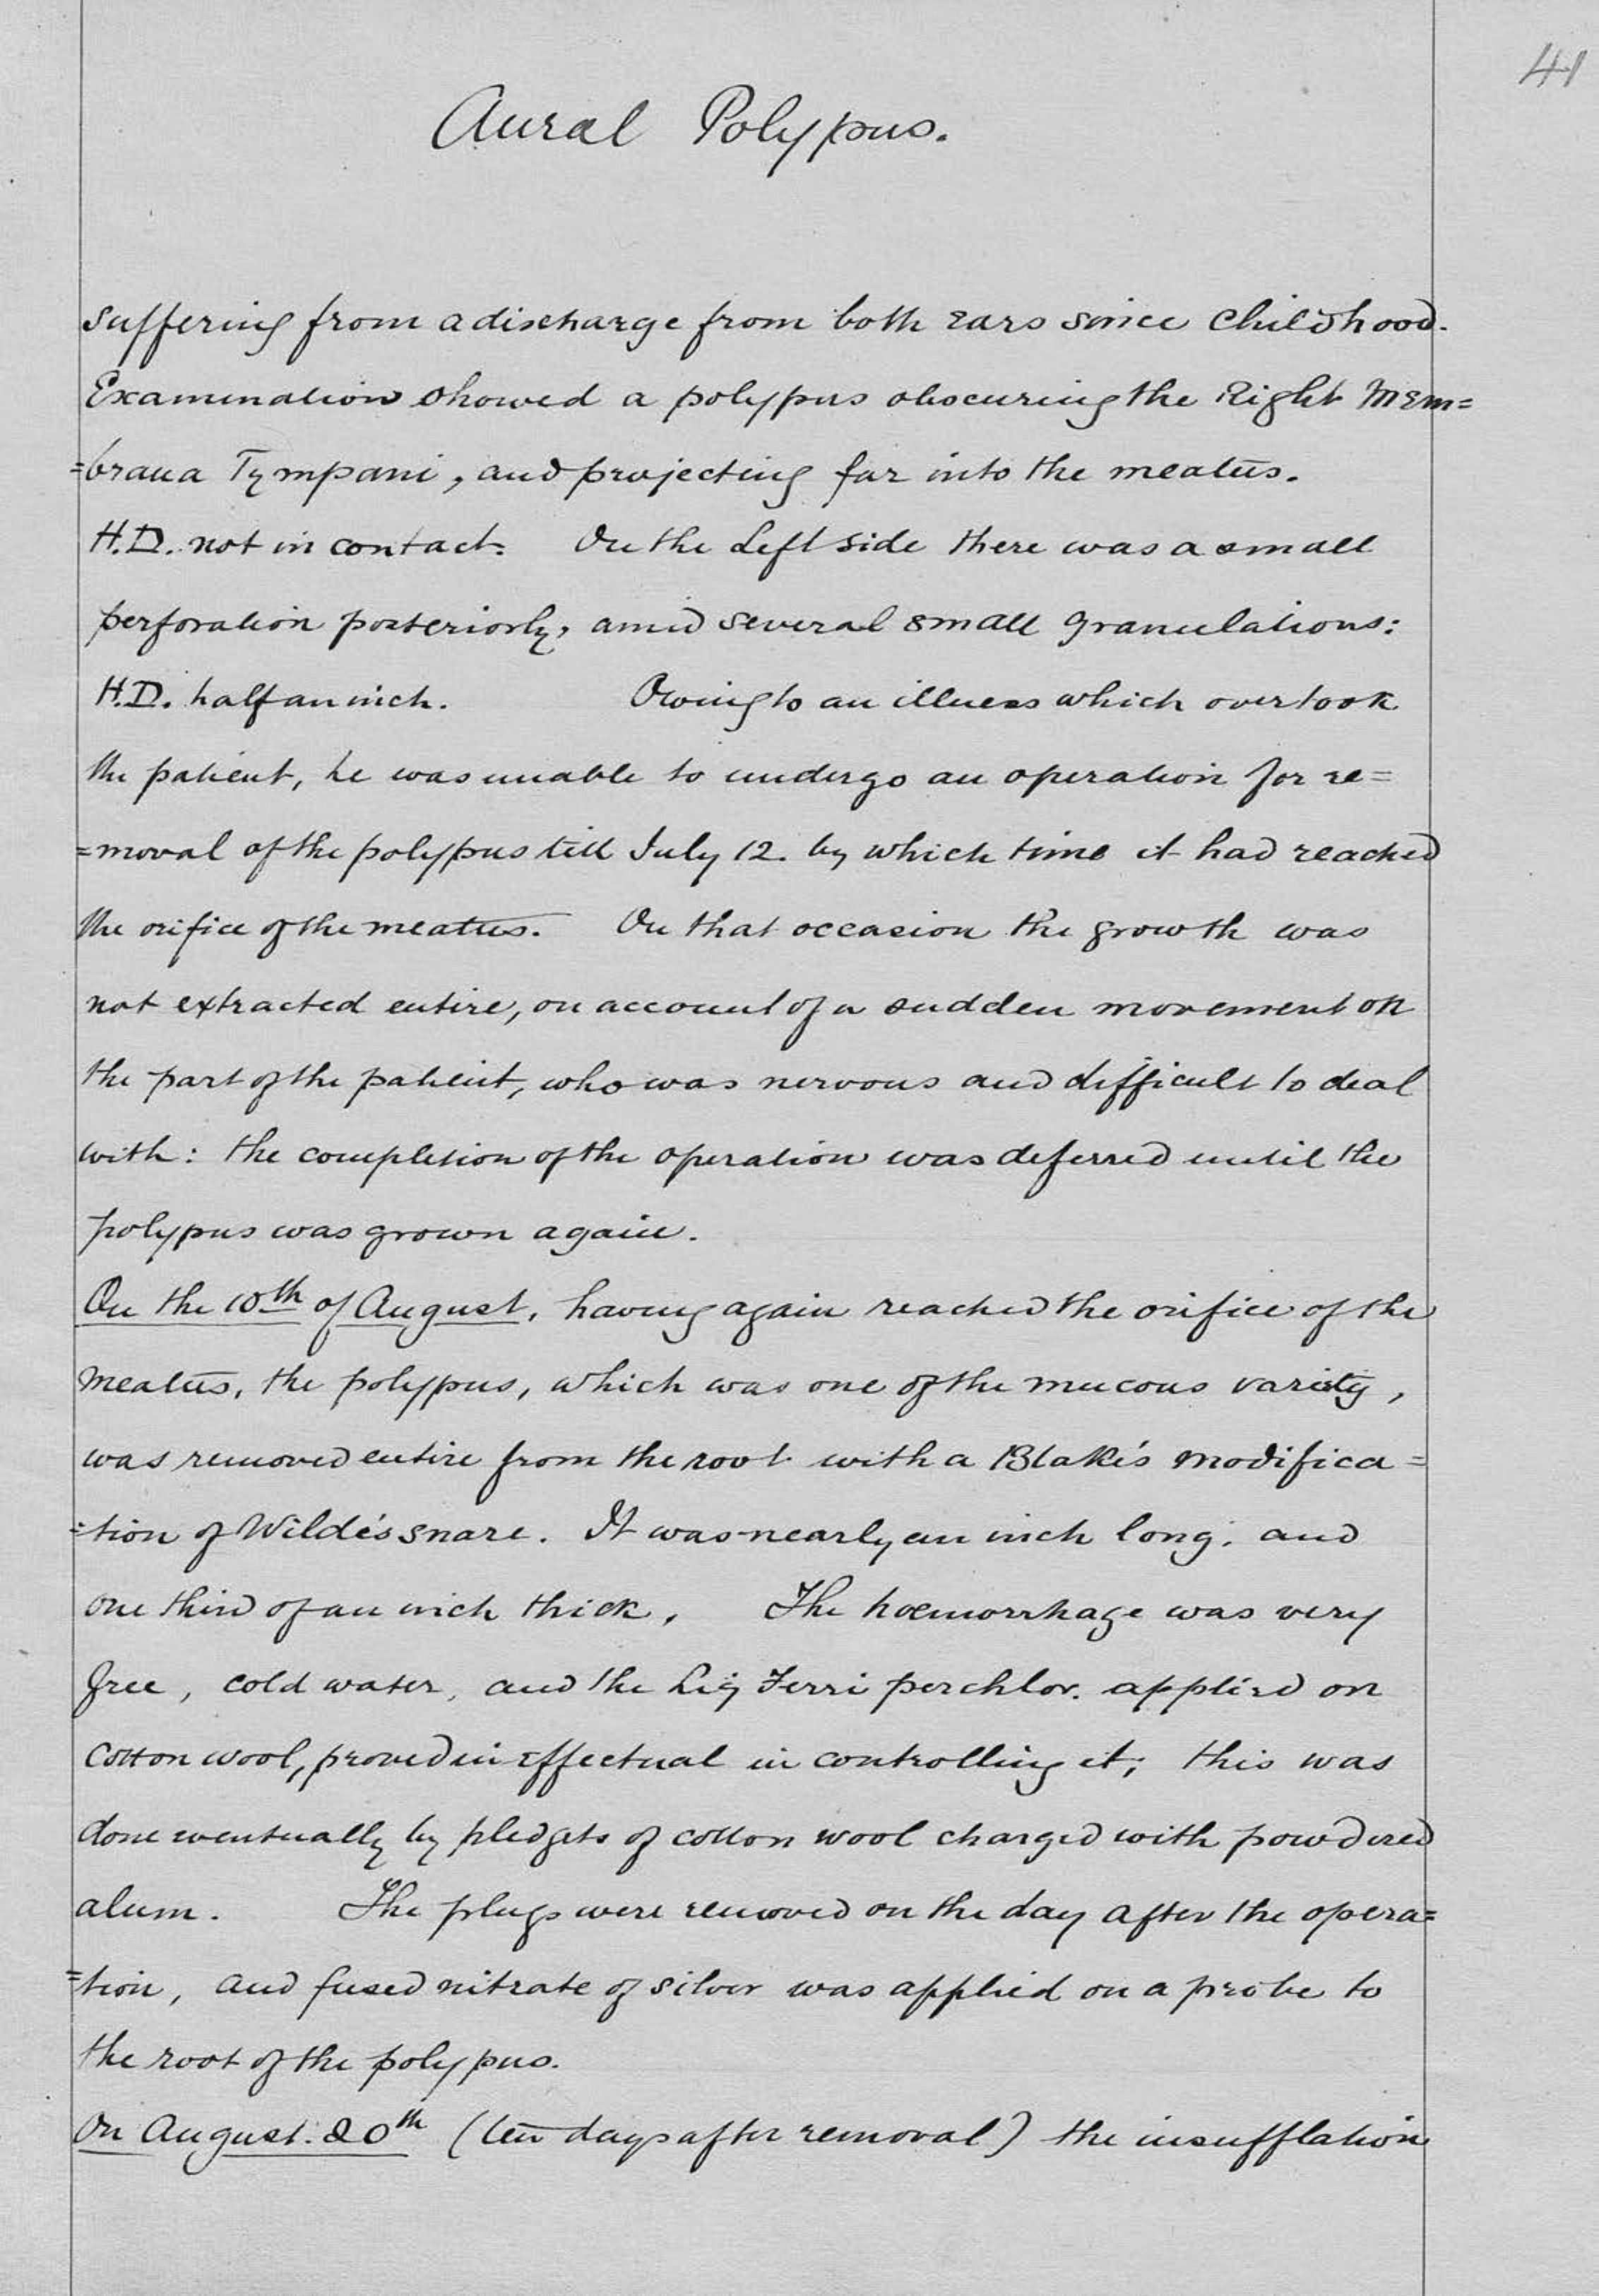 41
Aural Polypus.
suffering from a discharge from both ears since childhood.
Examination showed a polypus obscuring the Right Mem=
=brana Tympani, and projecting far into the meatus.
H.D. not in contact. On the Left side there was a small
perforation posteriorly, amid several small granulations:
H.D. half an inch. Owing to an illness which overtook
the patient, he was unable to undergo an operation for re=
=moval of the polypus till July 12. by which time it had reached
the orifice of the meatus. On that occasion the growth was
not extracted entire, on account of a sudden movement on
the part of the patient, who was nervous and difficult to deal
with: the completion of the operation was deferred until the
polypus was grown again.
On the 10th of August, having again reached the orifice of the
meatus, the polypus, which was one of the mucous variety,
was removed entire from the root with a Blake's modifica=
=tion of Wilde's snare. It was nearly an inch long, and
one third of an inch thick. The hœmorrhage was very
free, cold water, and the Liq Ferri perchlor. applied on
cotton wool, proved ineffectual in controlling it; this was
done eventually by pledgets of cotton wool charged with powdered
alum. The plugs were removed on the day after the opera=
=tion, and fused nitrate of silver was applied on a probe to
the root of the polypus.
On August. 20th (ten days after removal) the insufflation